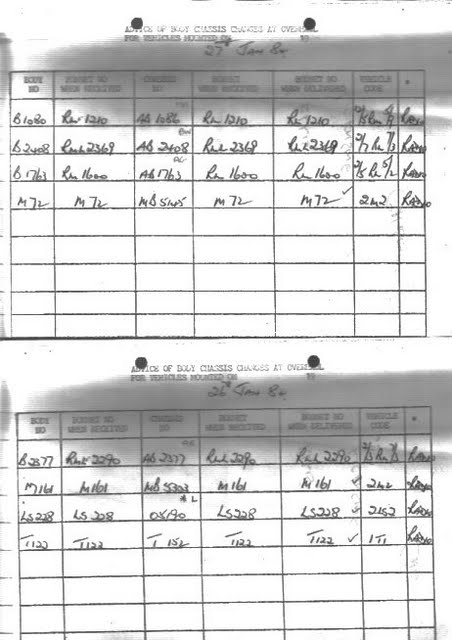 ADVICE OF BODY CHASSIS CHANGES AT OVERHAUL
FOR VEHICLES MOUNTED ON 19
27th JAN 84
BODY NO BONNET NO WHEN RECEIVED CHASSIS NO BONNET WHEN RECEIVED BONNET NO WHEN DELIVERED VEHICLE CODE *
B1080 RM 1210 AB 1086 RM 1210 RM 1210
B2408 RML 2369 AB 2408 RML 2369 RML 2369
B1763 RM 1600 AB1763 RM 1600 RM 1600
M 72 M 72 MB 5145 M 72 M 72 ✓ 2M2
ADVICE OF BODY CHASSIS CHANGES AT OVERHAUL
FOR VEHICLES MOUNTED ON 19
26th JAN 84
BODY NO BONNET NO WHEN RECEIVED CHASSIS NO BONNET WHEN RECEIVED BONNET NO WHEN DELIVERED VEHICLE CODE *
B2377 RML 2290 AB 2377 RML 2290 RML 2290
M161 M161 MB 5303 M161 M161 ✓ 2M2
LS228 LS 228 05190 LS228 LS228 ✓ 2LS2
T1122 T1122 T 152 T1122 T1122 ✓ 1T1